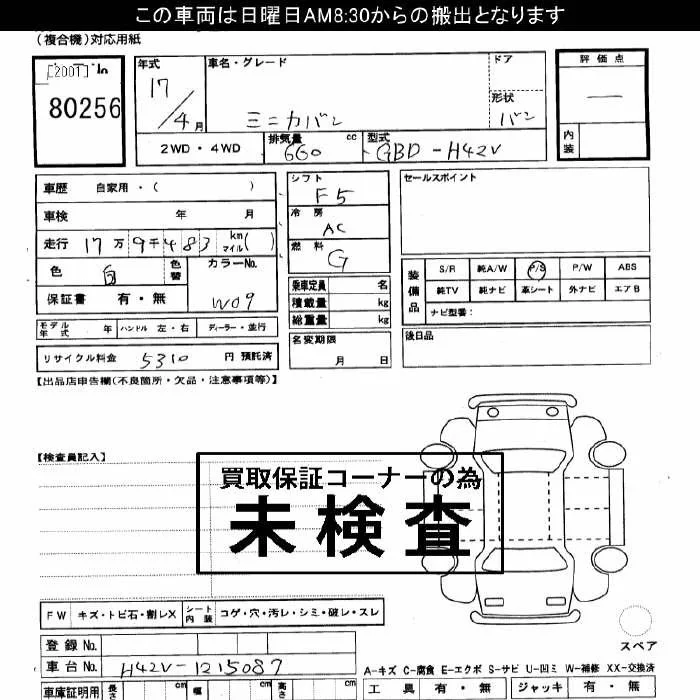 この車両は日曜日AM8:30からの搬出となります
（複合機）対応用紙
[2001]
80256
年式
17/4月
車名・グレード
ミニカバン
ドア
形状
バン
評価点
内装
2WD・4WD
排気量 660 cc
型式 GBD-H42V
車歴 自家用・（ ）
車検 年 月
走行 17万9千483 km マイル( )
色 白 色替
カラーNo. W09
保証書 有・無
モデル年式 年 ハンドル 左・右 ディーラー・並行
リサイクル料金 5310 円 預託済
シフト F5
冷房 AC
燃料 G
乗車定員 名
積載量 kg
総重量 kg
名変期限 月 日
セールスポイント
装備品
S/R 純A/W P/S P/W ABS
純TV 純ナビ 革シート 外ナビ エアB
ナビ型番：
後日品
【出品店申告欄(不良箇所・欠品・注意事項等)】
【検査員記入】
買取保証コーナーの為
未検査
FW キズ・トビ石・割レX シート内装 コゲ・穴・汚レ・シミ・破レ・スレ
登録No.
車台No. H42V-1215087
車庫証明用 長さ cm 幅 cm 高さ cm
スペア
A-キズ C-腐食 E-エクボ S-サビ U-凹ミ W-補修 XX-交換済
工具 有・無 ジャッキ 有・無